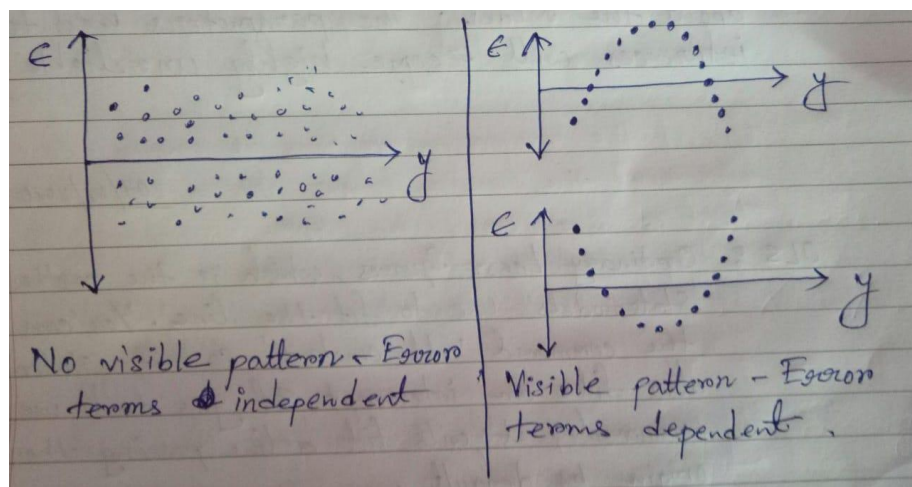 ϵ
y
No visible pattern - Error
terms independent
ϵ
y
ϵ
y
Visible pattern - Error
terms dependent.